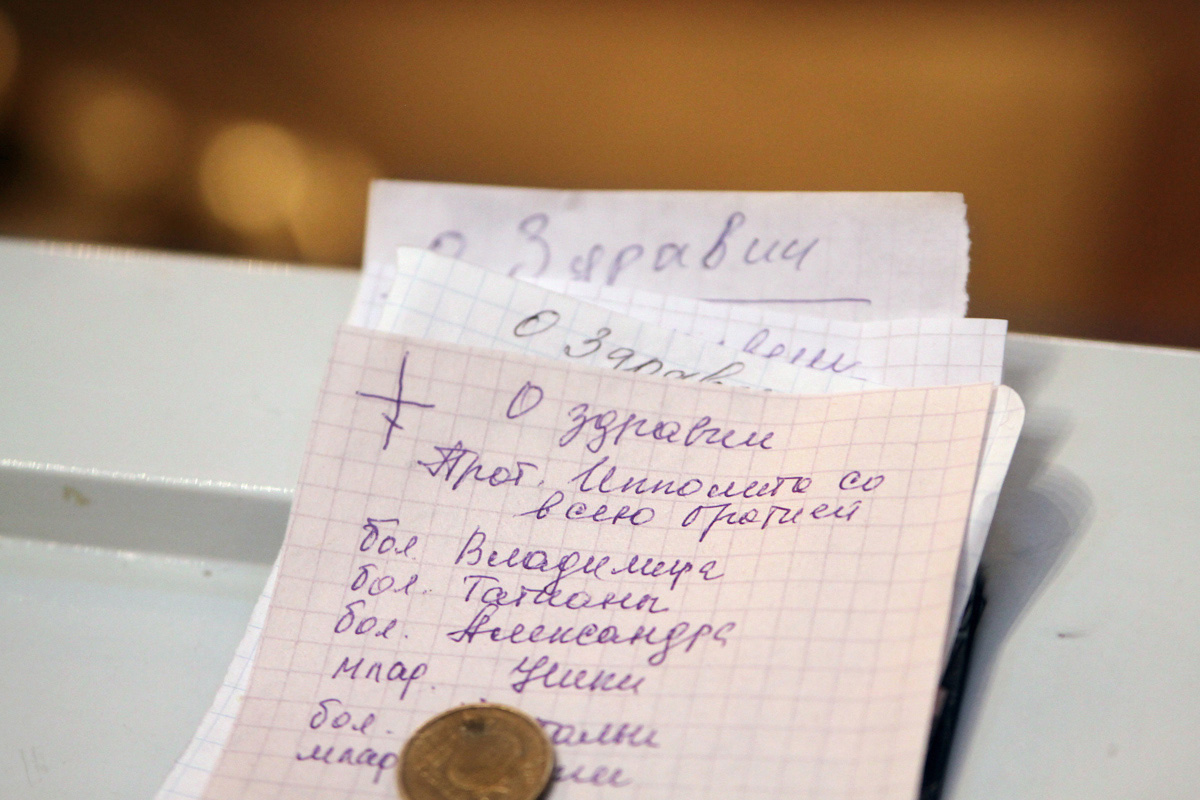 О Здравии
О Здрав
О здравии
Прот. Ипполита со
всею братией
бол. Владимира
бол. Татианы
бол. Александра
млад.
бол.
млад